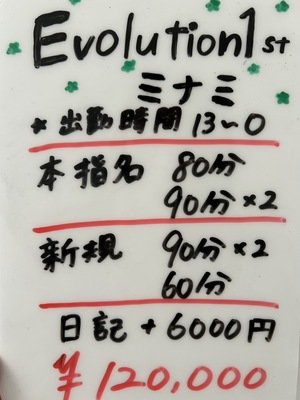 Evolution 1st
ミナミ
* 出勤時間 13~0
本指名 80分
90分×2
新規 90分×2
60分
日記 + 6000円
¥120,000